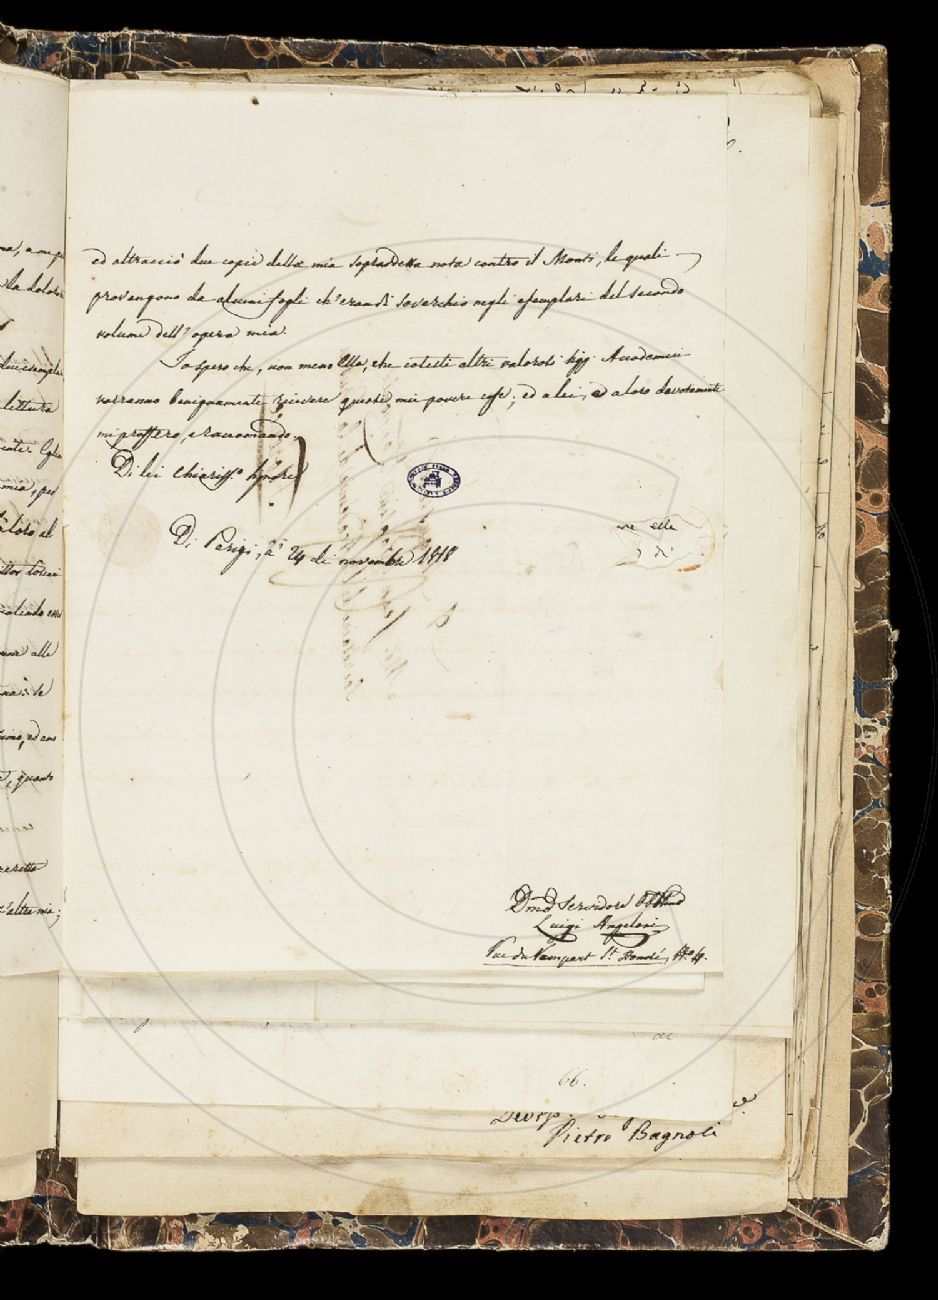 ed altracciò due copie della mia sopraddetta nota contro il Monti, le quali
provengono da alcuni fogli ch'eran di soverchio negli esemplari del secondo
volume dell'opera mia.
Io spero che, non meno Ella, che cotesti altri valorosi Sigg. Accademici
vorranno benignamente ricevere queste mie povere cose; ed a lei, ed a loro devotamente
mi proffero, e raccomando.
Di lei chiariss.o Signore
Di Parigi, a' 24 di novembre 1818
Dmo Servidore Obbmo
Luigi Angeloni
Rue du Rempart St. Honoré, No. 4.
66.
Pietro Bagnoli
lettura
mia, per
alle
se
quanto
l'altra mia;